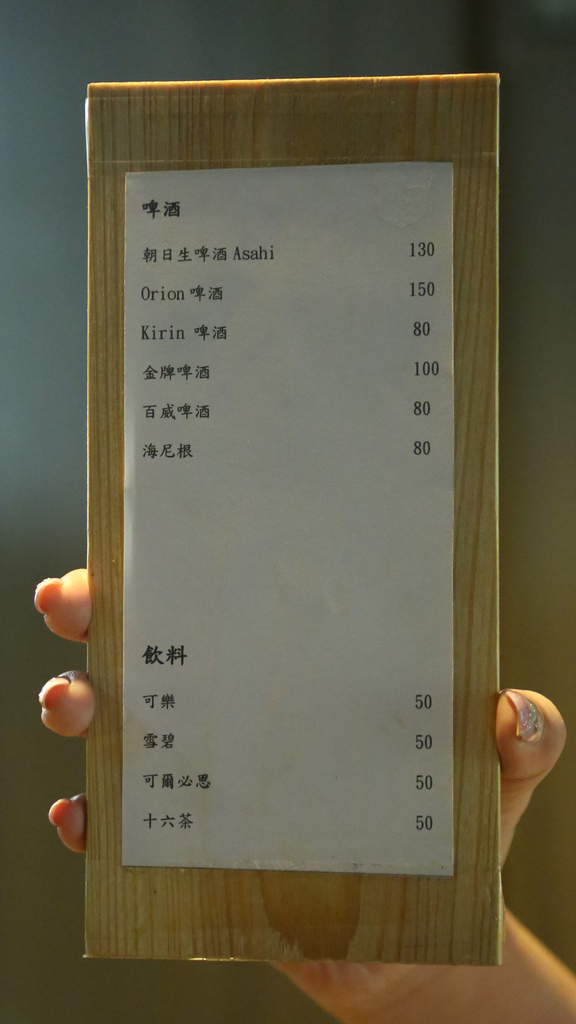 啤酒
朝日生啤酒 Asahi 130
Orion 啤酒 150
Kirin 啤酒 80
金牌啤酒 100
百威啤酒 80
海尼根 80
飲料
可樂 50
雪碧 50
可爾必思 50
十六茶 50